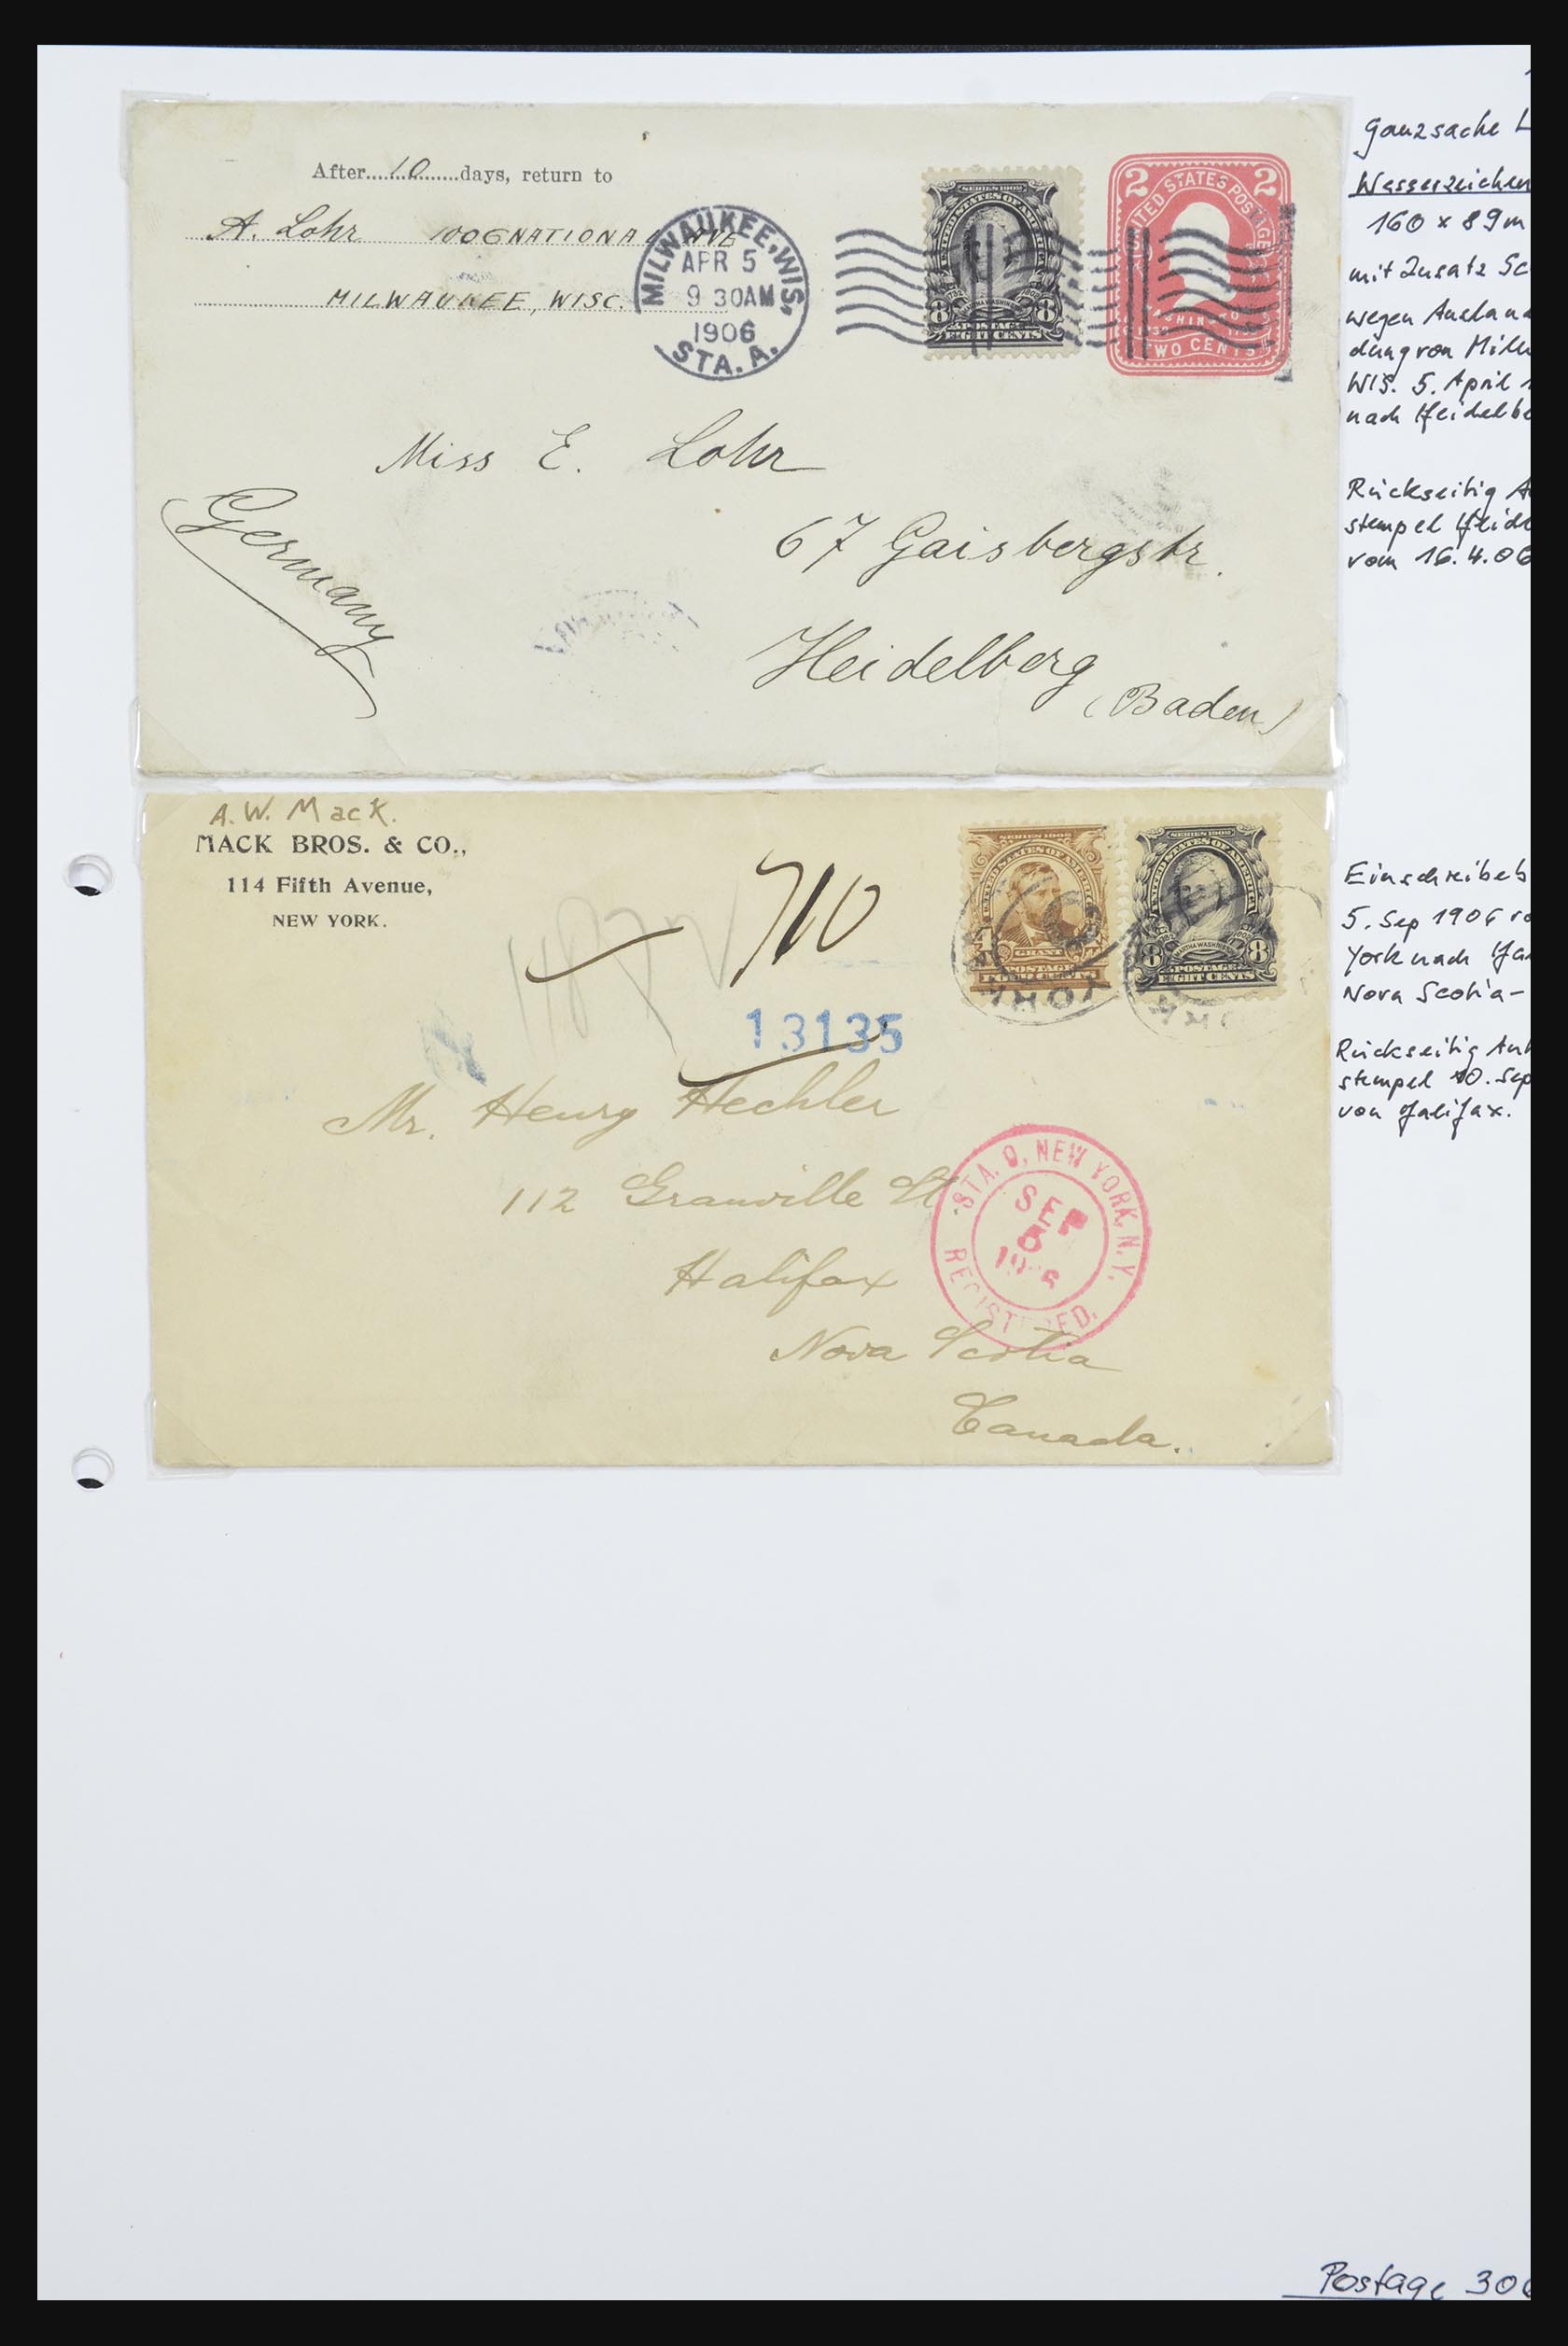 After 10 days, return to
A. Lohr 1006 NATIONAL AVE
MILWAUKEE, WISC.
MILWAUKEE, WIS.
APR 5
9 30AM
1906
STA. A.
SERIES 1902
UNITED STATES OF AMERICA
8 MARTHA WASHINGTON 8
POSTAGE
EIGHT CENTS
2 2
UNITED STATES POSTAGE
WASHINGTON
TWO CENTS
Miss E. Lohr
Germany
67 Gaisbergstr.
Heidelberg
(Baden)
Ganzsache
Wasserzeichen
160 x 89 m
mit Zusatz Sc
wegen Ausland
dung von Milw
WIS. 5. April
nach Heidelbe
Rückseitig A
stempel Heide
vom 16.4.06
A. W. Mack.
MACK BROS. & CO.,
114 Fifth Avenue,
NEW YORK.
710
13135
SERIES 1902
UNITED STATES OF AMERICA
4
GRANT
POSTAGE
FOUR CENTS
SERIES 1902
UNITED STATES OF AMERICA
8 MARTHA WASHINGTON 8
POSTAGE
EIGHT CENTS
Mr. Henry Hechler
112 Granville St
Halifax
Nova Scotia
Canada.
STA. O, NEW YORK, N.Y.
SEP
5
REGISTERED.
Einschreibeb
5. Sep 1906
York nach Ha
Nova Scotia –
Rückseitig Ank
stempel 10. Sep
von Halifax.
Postage 306